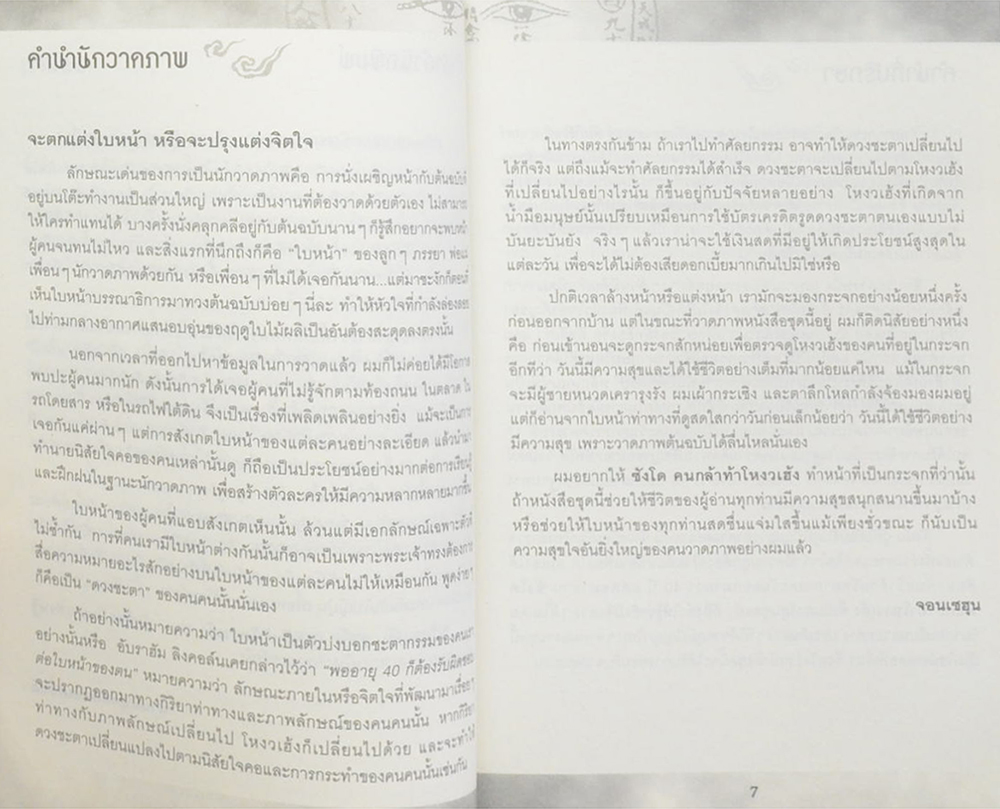 คำนำนักวาดภาพ
จะตกแต่งใบหน้า หรือจะปรุงแต่งจิตใจ
ลักษณะเด่นของการเป็นนักวาดภาพคือ การนั่งเผชิญหน้ากับต้นฉบับที่
อยู่บนโต๊ะทำงานเป็นส่วนใหญ่ เพราะเป็นงานที่ต้องวาดด้วยตัวเอง ไม่สามารถ
ให้ใครทำแทนได้ บางครั้งนั่งคลุกคลีอยู่กับต้นฉบับนานๆ ก็รู้สึกอยากจะพบหน้า
ผู้คนจนทนไม่ไหว และสิ่งแรกที่นึกถึงก็คือ “ใบหน้า” ของลูกๆ ภรรยา พ่อแม่
เพื่อนๆ นักวาดภาพด้วยกัน หรือเพื่อนๆ ที่ไม่ได้เจอกันนาน...แต่มาชะงักก็ตอนที่
เห็นใบหน้าบรรณาธิการมาทวงต้นฉบับบ่อยๆ นี่ละ ทำให้หัวใจที่กำลังล่องลอย
ไปท่ามกลางอากาศแสนอบอุ่นของฤดูใบไม้ผลิเป็นอันต้องสะดุดลงตรงนั้น
นอกจากเวลาที่ออกไปหาข้อมูลในการวาดแล้ว ผมก็ไม่ค่อยได้มีโอกาส
พบปะผู้คนมากนัก ดังนั้นการได้เจอผู้คนที่ไม่รู้จักตามท้องถนน ในตลาด ใน
รถโดยสาร หรือในรถไฟใต้ดิน จึงเป็นเรื่องที่เพลิดเพลินอย่างยิ่ง แม้จะเป็นการ
เจอกันแค่ผ่านๆ แต่การสังเกตใบหน้าของแต่ละคนอย่างละเอียด แล้วนำมา
ทำนายนิสัยใจคอของคนเหล่านั้นดู ก็ถือเป็นประโยชน์อย่างมากต่อการเรียนรู้
และฝึกฝนในฐานะนักวาดภาพ เพื่อสร้างตัวละครให้มีความหลากหลายมากขึ้น
ใบหน้าของผู้คนที่แอบสังเกตเห็นนั้น ล้วนแต่มีเอกลักษณ์เฉพาะตัวที่
ไม่ซ้ำกัน การที่คนเรามีใบหน้าต่างกันนั้นก็อาจเป็นเพราะพระเจ้าทรงต้องการ
สื่อความหมายอะไรสักอย่างบนใบหน้าของแต่ละคนไม่ให้เหมือนกัน พูดง่ายๆ
ก็คือเป็น “ดวงชะตา” ของคนคนนั้นนั่นเอง
ถ้าอย่างนั้นหมายความว่า ใบหน้าเป็นตัวบ่งบอกชะตากรรมของคนเรา
อย่างนั้นหรือ อับราฮัม ลิงคอล์นเคยกล่าวไว้ว่า “พออายุ 40 ก็ต้องรับผิดชอบ
ต่อใบหน้าของตน” หมายความว่า ลักษณะภายในหรือจิตใจที่พัฒนามาเรื่อยๆ
จะปรากฏออกมาทางกิริยาท่าทางและภาพลักษณ์ของคนคนนั้น หากกิริยา
ท่าทางกับภาพลักษณ์เปลี่ยนไป โหงวเฮ้งก็เปลี่ยนไปด้วย และจะทำให้
ดวงชะตาเปลี่ยนแปลงไปตามนิสัยใจคอและการกระทำของคนคนนั้นเช่นกัน
ในทางตรงกันข้าม ถ้าเราไปทำศัลยกรรม อาจทำให้ดวงชะตาเปลี่ยนไป
ได้ก็จริง แต่ถึงแม้จะทำศัลยกรรมได้สำเร็จ ดวงชะตาจะเปลี่ยนไปตามโหงวเฮ้ง
ที่เปลี่ยนไปอย่างไรนั้น ก็ขึ้นอยู่กับปัจจัยหลายอย่าง โหงวเฮ้งที่เกิดจาก
น้ำมือมนุษย์นั้นเปรียบเหมือนการใช้บัตรเครดิตรูดดวงชะตาตนเองแบบไม่
บันยะบันยัง จริงๆ แล้วเราน่าจะใช้เงินสดที่มีอยู่ให้เกิดประโยชน์สูงสุดใน
แต่ละวัน เพื่อจะได้ไม่ต้องเสียดอกเบี้ยมากเกินไปมิใช่หรือ
ปกติเวลาล้างหน้าหรือแต่งหน้า เรามักจะมองกระจกอย่างน้อยหนึ่งครั้ง
ก่อนออกจากบ้าน แต่ในขณะที่วาดภาพหนังสือชุดนี้อยู่ ผมก็ติดนิสัยอย่างหนึ่ง
คือ ก่อนเข้านอนจะดูกระจกสักหน่อยเพื่อตรวจดูโหงวเฮ้งของคนที่อยู่ในกระจก
อีกทีว่า วันนี้มีความสุขและได้ใช้ชีวิตอย่างเต็มที่มากน้อยแค่ไหน แม้ในกระจก
จะมีผู้ชายหนวดเครารุงรัง ผมเผ้ากระเซิง และตาลึกโหลกำลังจ้องมองผมอยู่
แต่ก็อ่านจากใบหน้าท่าทางที่ดูสดใสกว่าวันก่อนเล็กน้อยว่า วันนี้ได้ใช้ชีวิตอย่าง
มีความสุข เพราะวาดภาพต้นฉบับได้ลื่นไหลนั่นเอง
ผมอยากให้ ซังโด คนกล้าท้าโหงวเฮ้ง ทำหน้าที่เป็นกระจกที่ว่านั้น
ถ้าหนังสือชุดนี้ช่วยให้ชีวิตของผู้อ่านทุกท่านมีความสุขสนุกสนานขึ้นมาบ้าง
หรือช่วยให้ใบหน้าของทุกท่านสดชื่นแจ่มใสขึ้นแม้เพียงชั่วขณะ ก็นับเป็น
ความสุขใจอันยิ่งใหญ่ของคนวาดภาพอย่างผมแล้ว
จอนเซฮุน
7